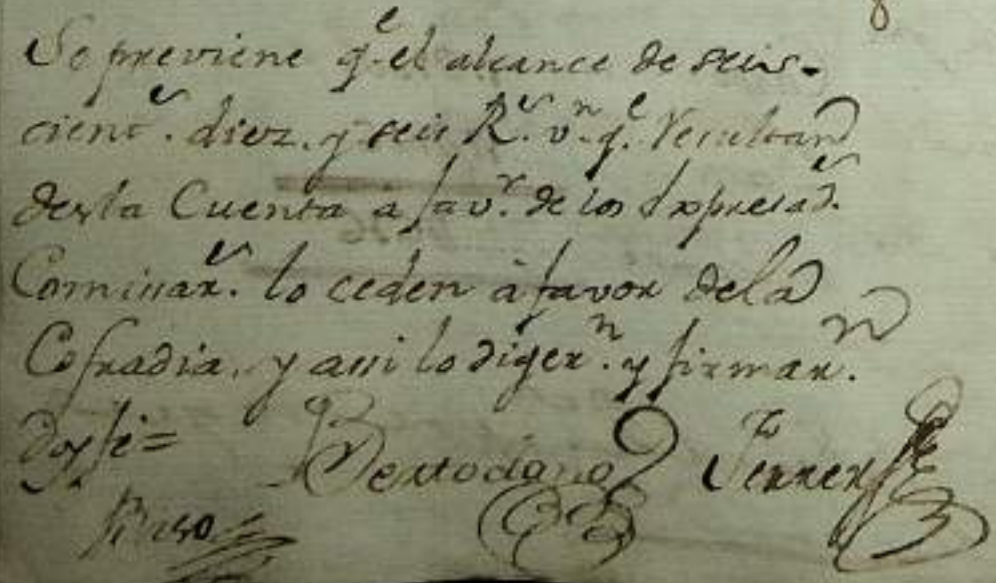 Se previene q.e el alcance de seis-
cient.s diez, y seis R.s v.n q.e resultan
desta Cuenta a fav.r de los Expresad.s
Comisar.s lo ceden à favor dela
Cofradia, y assi lo diger.n y firmar.n
Doy fe=
Bertodano Ferrer